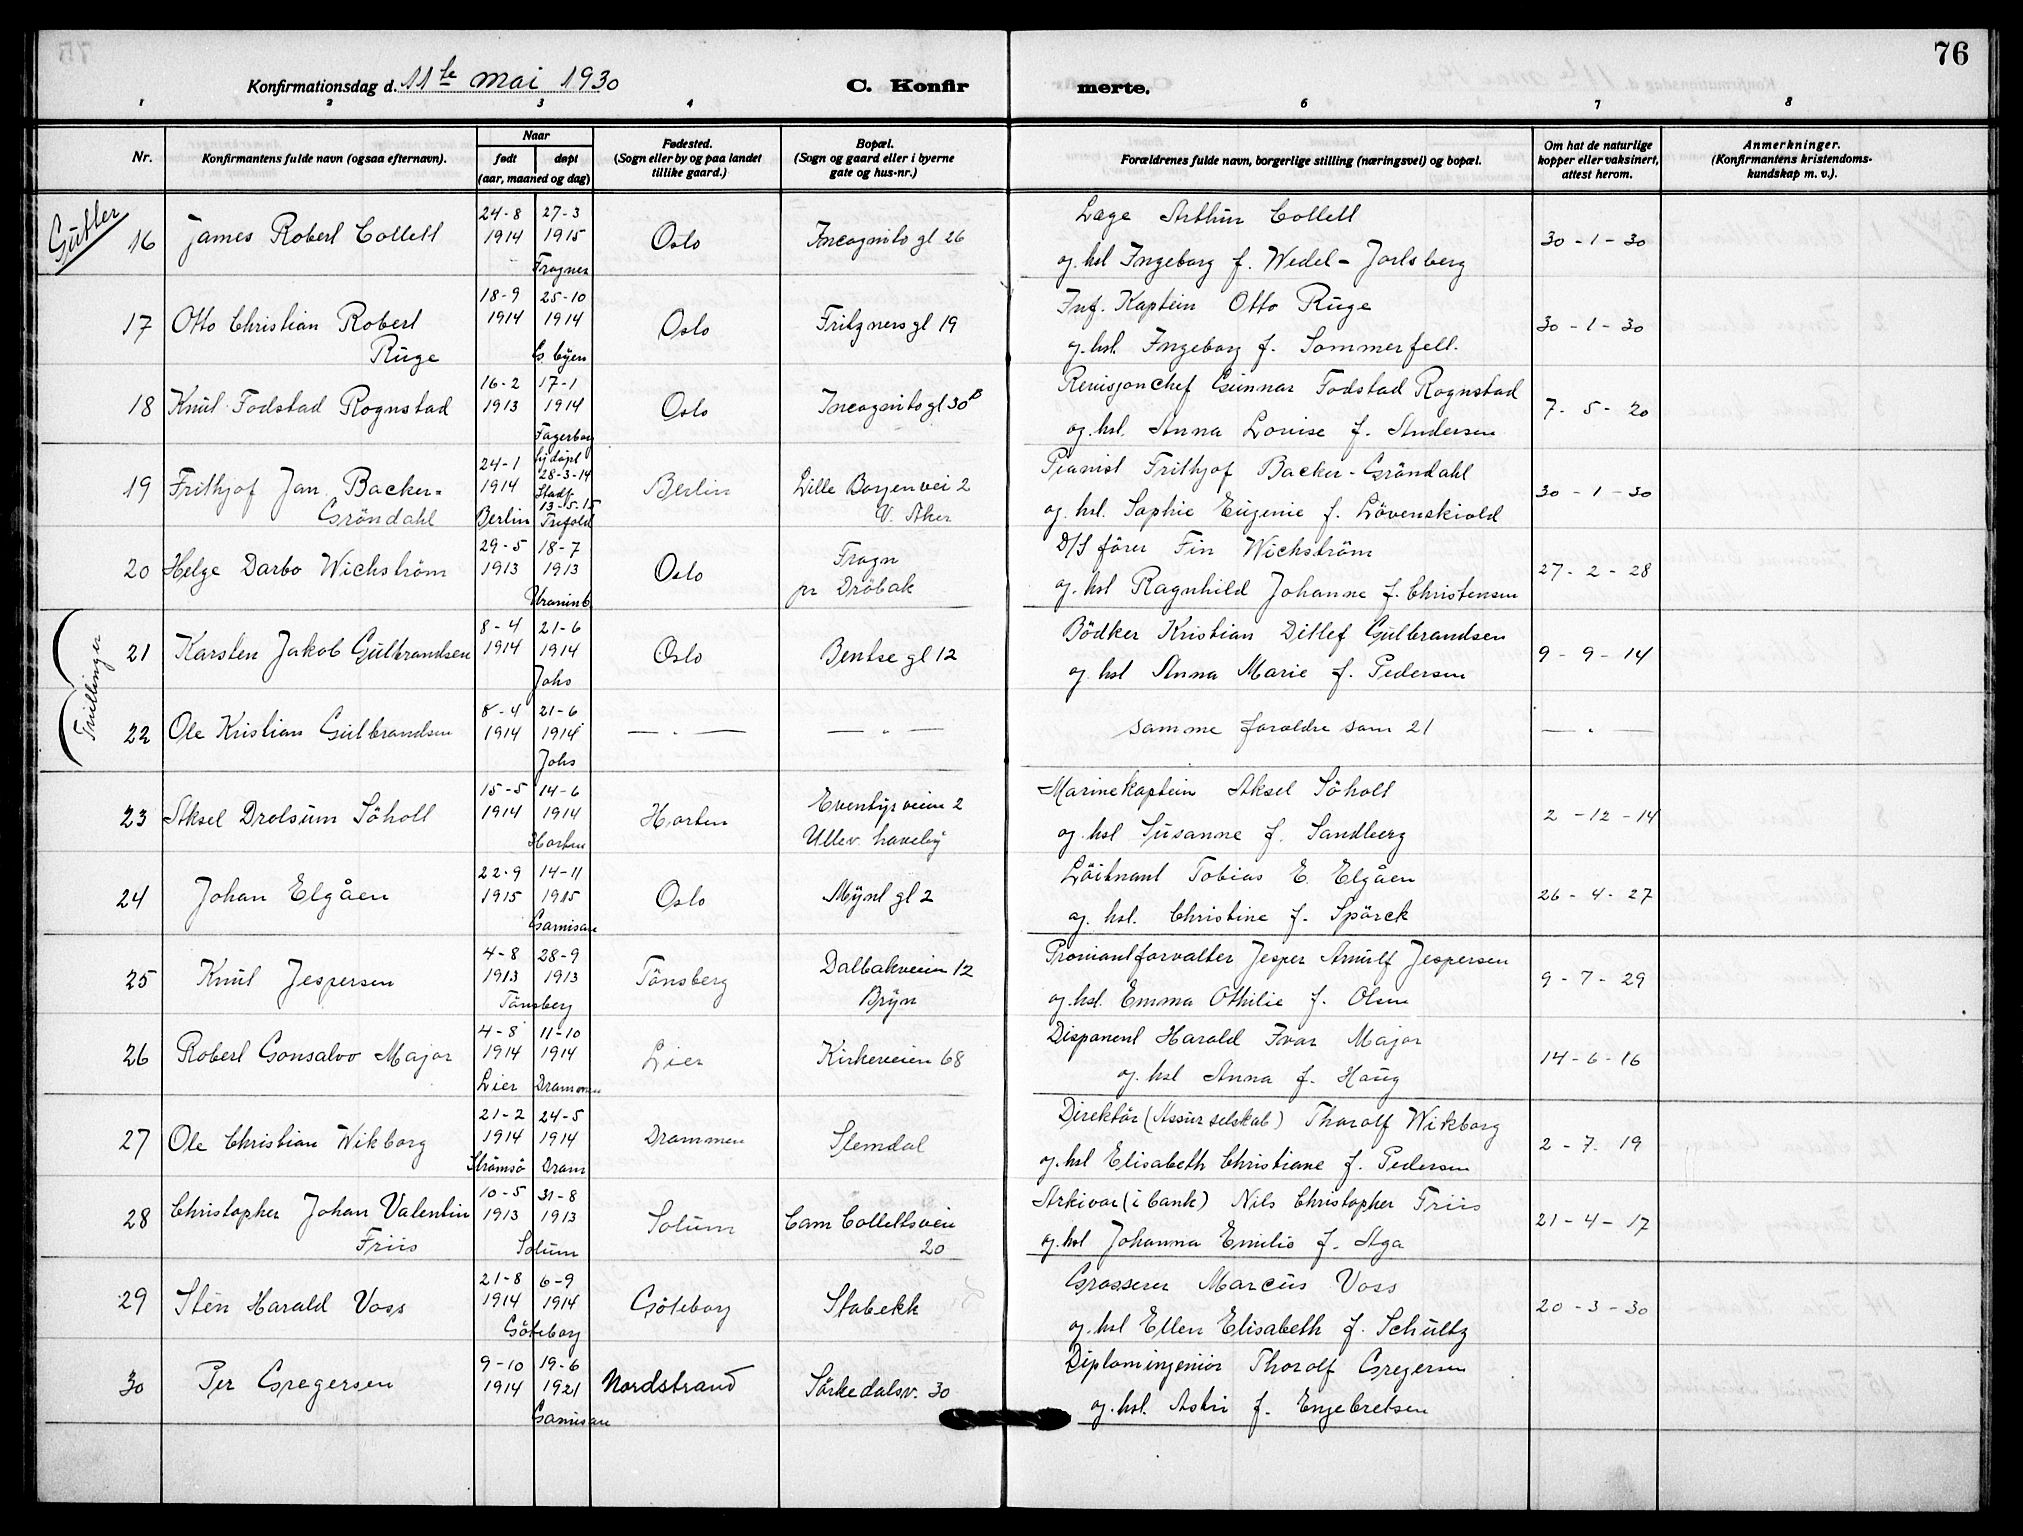 76
Konfirmationsdag d. 11te mai 1930
C. Konfirmerte.
1 2 3 4 6 7 8
Nr.
Konfirmantens fulde navn (ogsaa efternavn).
Naar
født døpt
(aar, maaned og dag)
Fødested.
(Sogn eller by og paa landet
tillike gaard.)
Bopæl.
(Sogn og gaard eller i byerne
gate og hus-nr.)
Forældrenes fulde navn, borgerlige stilling (næringsvei) og bopæl.
Om hat de naturlige
kopper eller vaksinert,
attest herom.
Anmerkninger.
(Konfirmantens kristendoms-
kundskap m. v.).
Gutter
16 James Robert Collett 24-8 1914 27-3 1915 Frogner Oslo Incognito gt 26
Læge Arthur Collett
og hst Ingeborg f. Wedel-Jarlsberg
30-1-30
17 Otto Christian Robert
Ruge 18-9 1914 25-10 1914 G. byen Oslo Fritzners gt 19
Inf. Kaptein Otto Ruge
og hst. Ingeborg f. Sommerfelt.
30-1-30
18 Knut Fodstad Rognstad 16-2 1913 17-1 1914 Fagerborg Oslo Incognito gt 30B
Revisjonchef Gunnar Fodstad Rognstad
og hst. Anna Lovise f. Andersen
7-5-20
19 Frithjof Jan Backer-
Gröndahl 24-1 1914 Berlin hjdøpt 28-3-14 Stadf. 13-5-15 Trefold Berlin Lille Borgenvei 2
V. Aker
Pianist Frithjof Backer-Gröndahl
og hst. Sophie Eugenie f. Lövenskiold
30-1-30
20 Helge Darbo Wichström 29-5 1913 18-7 1913 Uranienb Oslo Frogn
pr Dröbak
D/S förer Fin Wichström
og hst Ragnhild Johanne f. Christensen
27-2-28
Trillinger
21 Karsten Jakob Gulbrandsen 8-4 1914 21-6 1914 Johs Oslo Bentse gt 12
Bödker Kristian Ditlef Gulbrandsen
og hst Anna Marie f. Pedersen
9-9-14
22 Ole Kristian Gulbrandsen 8-4 1914 21-6 1914 Johs — " — — " —
samme forældre som 21
— " —
23 Aksel Drolsum Söholt 15-5 1914 14-6 1914 Horten Horten Eventyrveien 2
Ullev. haveby
Marinekaptein Aksel Söholt
og hst Susanne f. Sandberg
2-12-14
24 Johan Elgåen 22-9 1915 14-11 1915 Garnison Oslo Mynt gt 2
Löitnant Tobias E. Elgåen
og hst. Christine f. Spörck
26-4-27
25 Knut Jespersen 4-8 1913 28-9 1913 Tönsberg Tönsberg Dalbakveien 12
Bryn
Proviantforvalter Jesper Arnulf Jespersen
og hst. Emma Othilie f. Olsen
9-7-29
26 Robert Gonsalvo Major 4-8 1914 Lier 11-10 1914 Drammen Lier Kirkeveien 68
Disponent Harald Ivar Major
og hst Anna f. Haug
14-6-16
27 Ole Christian Wikborg 21-2 1914 Strömsö 24-5 1914 Dram Drammen Slemdal
Direktör (Assur selskab) Thorolf Wikborg
og hst Elisabeth Christiane f. Pedersen
2-7-19
28 Christopher Johan Valentin
Friis 10-5 1913 31-8 1913 Solum Solum Cam Collettsvei
20
Arkivar (i bank) Nils Christopher Friis
og hst Johanna Emilie f. Aga
21-4-17
29 Sten Harald Voss 21-8 1914 6-9 1914 Göteborg Göteborg Stabekk
Grosserer Marcus Voss
og hst Ellen Elisabeth f. Schultz
20-3-30
30 Per Gregersen 9-10 1914 19-6 1921 Garnison Nordstrand Sörkedalsv. 30
Diplomingeniör Thorolf Gregersen
og hst. Astri f. Engebretsen